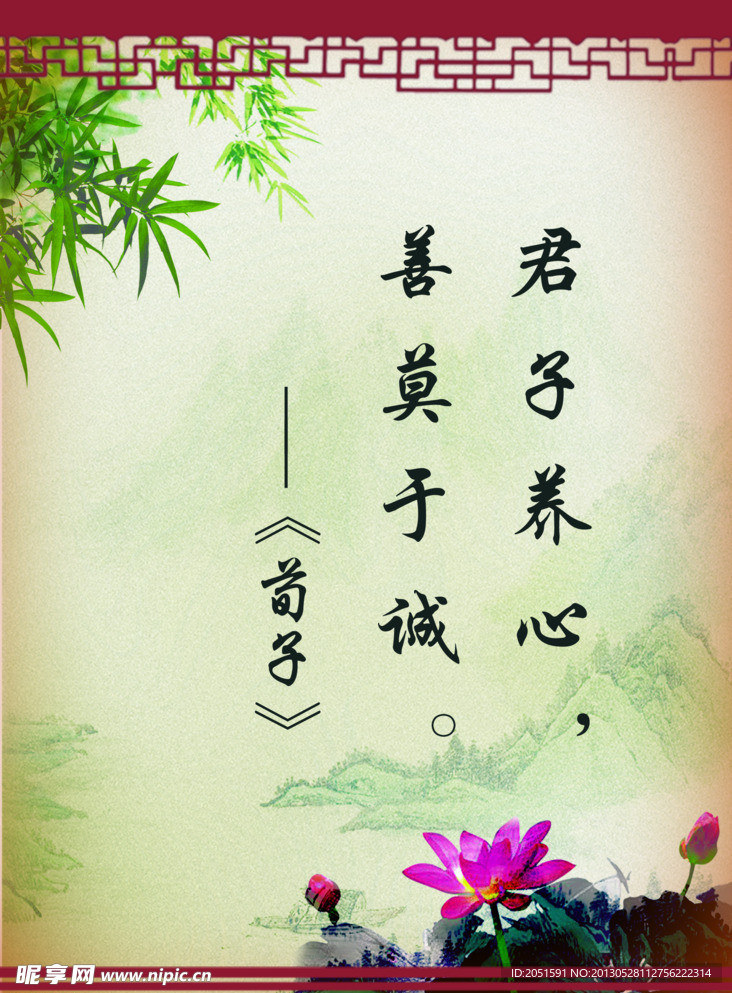 君子养心，
善莫于诚。
——《荀子》
昵享网 www.nipic.cn
ID:2051591 NO:20130528112756222314